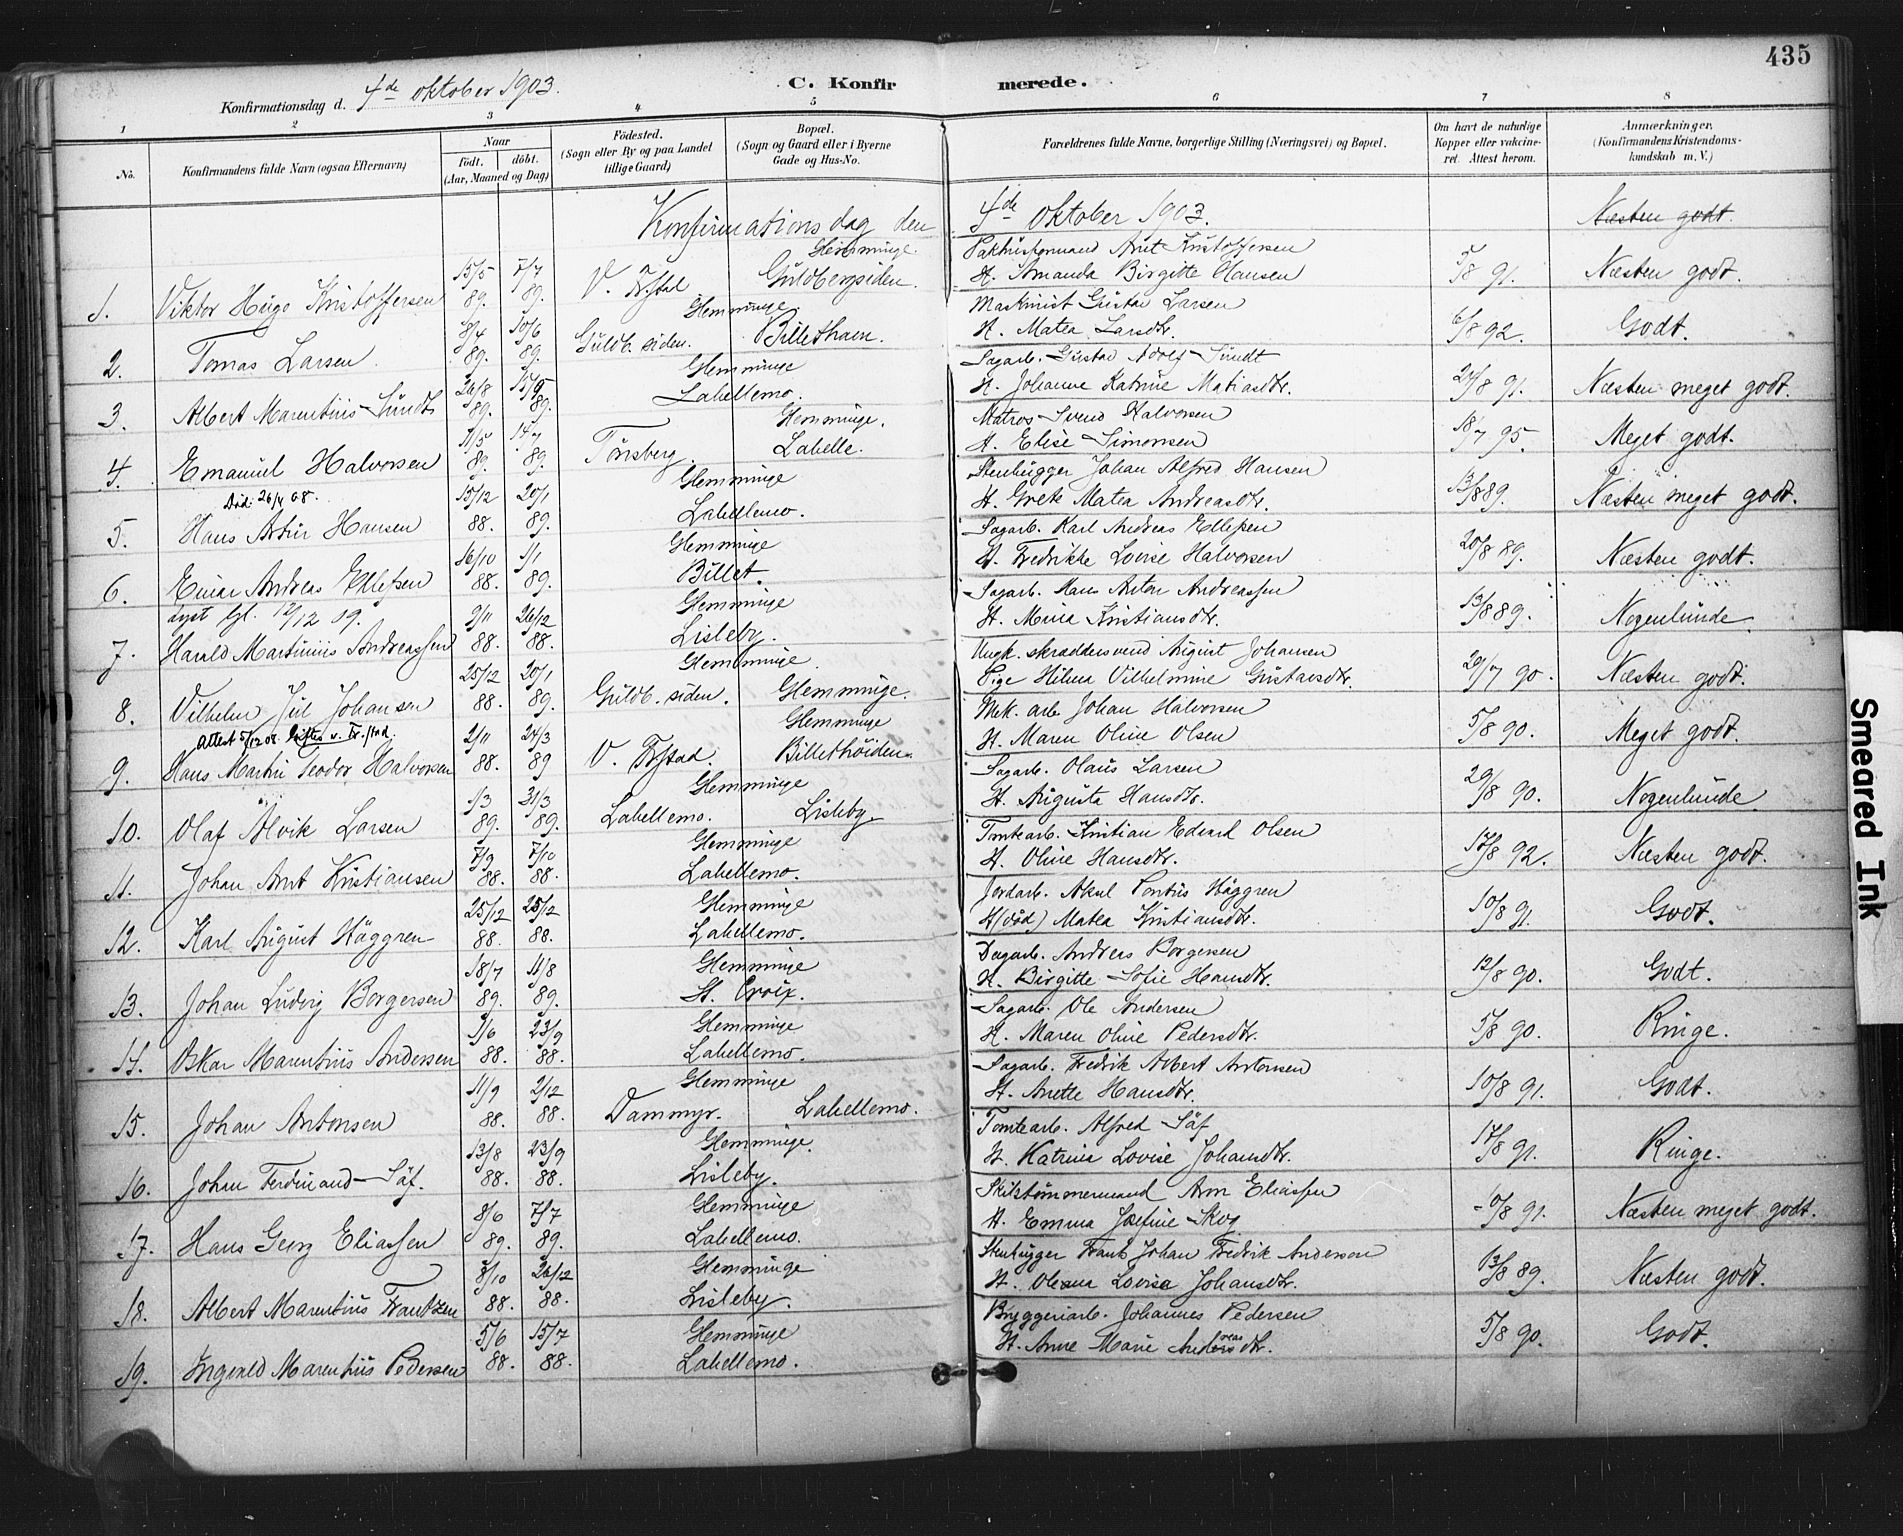 435
Konfirmationsdag d. 4de oktober 1903.
C. Konfirmerede.
1 2 3 4 5 6 7 8
No.
Konfirmandens fulde Navn (ogsaa Efternavn)
Naar
födt. döbt.
(Aar, Maaned og Dag)
Födested.
(Sogn eller By og paa Landet
tillige Gaard)
Bopæl.
(Sogn og Gaard eller i Byerne
Gade og Hus-No.
Forældrenes fulde Navne, borgerlige Stilling (Næringsvei) og Bopæl.
Om havt de naturlige
Kopper eller vaccineret. Attest herom.
Anmærkninger.
(Konfirmandens Kristendomskundskab m. V.)
Konfirmationsdag den 4de oktober 1903. Næsten godt.
Glemminge Pakhusformand Arnt Kristoffersen
1. Viktor Hugo Kristoffersen 15/5 89. 7/7 89. V. Frstad Guldbergsiden. H. Amanda Birgitte Hansen 5/8 91. Næsten godt.
Glemminge Maskinist Gustav Larsen
2. Tomas Larsen 8/4 89. 10/6 89. Guldb. siden. Billethavn. H. Matea Larsdtr. 6/8 92. Godt.
Glemminge Sagarb. Gustav Adolf Sundt
3. Albert Marentius Sundt 26/8 89. 15/9 89. Lahellemo. H. Johanne Katrine Matiasdtr. 24/8 91. Næsten meget godt.
Glemminge. Matros Svend Halvorsen
4. Emanuel Halvorsen 11/5 89. 14/7 89. Tönsberg. Labelle. H. Elise Simonsen 18/7 95. Meget godt.
Död: 26/4 08. Glemminge Stenhugger Johan Alfred Hansen
5. Hans Artur Hansen 15/12 88. 20/1 89. Lahellemo. H. Grete Matea Andreasdtr. 13/8 89. Næsten meget godt.
Glemminge Sagarb. Karl Andreas Ellefsen
6. Einar Andreas Ellefsen 16/10 88. 1/1 89. Billet. H. Fredrikke Lovise Halvorsen 20/8 89. Næsten godt.
Lyst lgl. 12/12 09. Glemminge Sagarb. Hans Anton Andreassen
7. Harald Martinius Andreassen 2/11 88. 26/12 88. Lisleby. H. Mina Kristiansdtr. 13/8 89. Nogenlunde.
Glemminge. Ungk. skræddersvend August Johansen
8. Vilhelm Jul Johansen 25/12 88. 20/1 89. Guldb. siden. Glemminge. Pige Hilma Vilhelmine Gustavsdtr. 29/7 90. Næsten godt.
Attest 5/12 08 Giftes v. Fr.stad. Glemminge Mek. arb. Johan Halvorsen
9. Hans Martin Teodor Halvorsen 2/11 88. 24/3 89 V. Frstad. Billethöiden. H. Maren Oline Olsen 5/8 90. Meget godt.
Glemminge Sagarb. Olaus Larsen
10. Olaf Alvik Larsen 1/3 89. 31/3 89. Lahellemo. Lisleby. H. Augusta Hansdtr. 29/8 90. Nogenlunde
Glemminge Tomtearb. Kristian Edvard Olsen
11. Johan Arnt Kristiansen 7/9 88. 7/10 88. Lahellemo. H. Oline Hansdtr. 17/8 92. Næsten godt.
Glemminge Jordarb. Aksel Pontus Häggren
12. Karl August Häggren 25/12 88. 25/12 88. Lahellemo. H. (död.) Matea Kristiansdtr. 10/8 91. Godt.
Glemminge Dagarb. Andreas Borgersen
13. Johan Ludvig Borgersen 18/7 89. 11/8 89. St. Croix. H. Birgitte Sofie Hansdtr. 12/8 90. Godt.
Glemminge Sagarb. Ole Andersen
14. Oskar Marentius Andersen 9/6 88. 23/9 88. Lahellemo. H. Maren Oline Pedersdtr. 5/8 90. Ringe.
Glemminge Sagarb. Fredrik Albert Antonsen
15. Johan Antonsen 11/9 88. 2/12 88. Dammyr. Lahellemo. H. Anette Hansdtr. 10/8 91. Godt.
Glemminge. Tomtearb. Alfred Säf
16. Johan Ferdinand Säf. 13/8 88. 23/9 88. Lisleby. H. Katrina Lovise Johansdtr. 17/8 91. Ringe.
Glemminge Skibstömmermand Arn Eliassen
17. Hans Georg Eliassen 8/6 89. 7/7 89. Lahellemo. H. Emma Josefine Skog 10/8 91. Næsten meget godt.
Glemminge Stenhugger Frants Johan Fredrik Anderson
18. Albert Marentius Frantzen 8/10 88. 26/12 88. Lisleby. H. Olena Lovisa Johansdtr. 13/8 89. Næsten godt.
Glemminge Bryggeriarb. Johannes Pedersen
19. Ingvald Marentius Pedersen 5/6 88. 15/7 88. Lahellemo. H. Anne Marie Andreasdtr. 5/8 90. Godt.
Smeared Ink